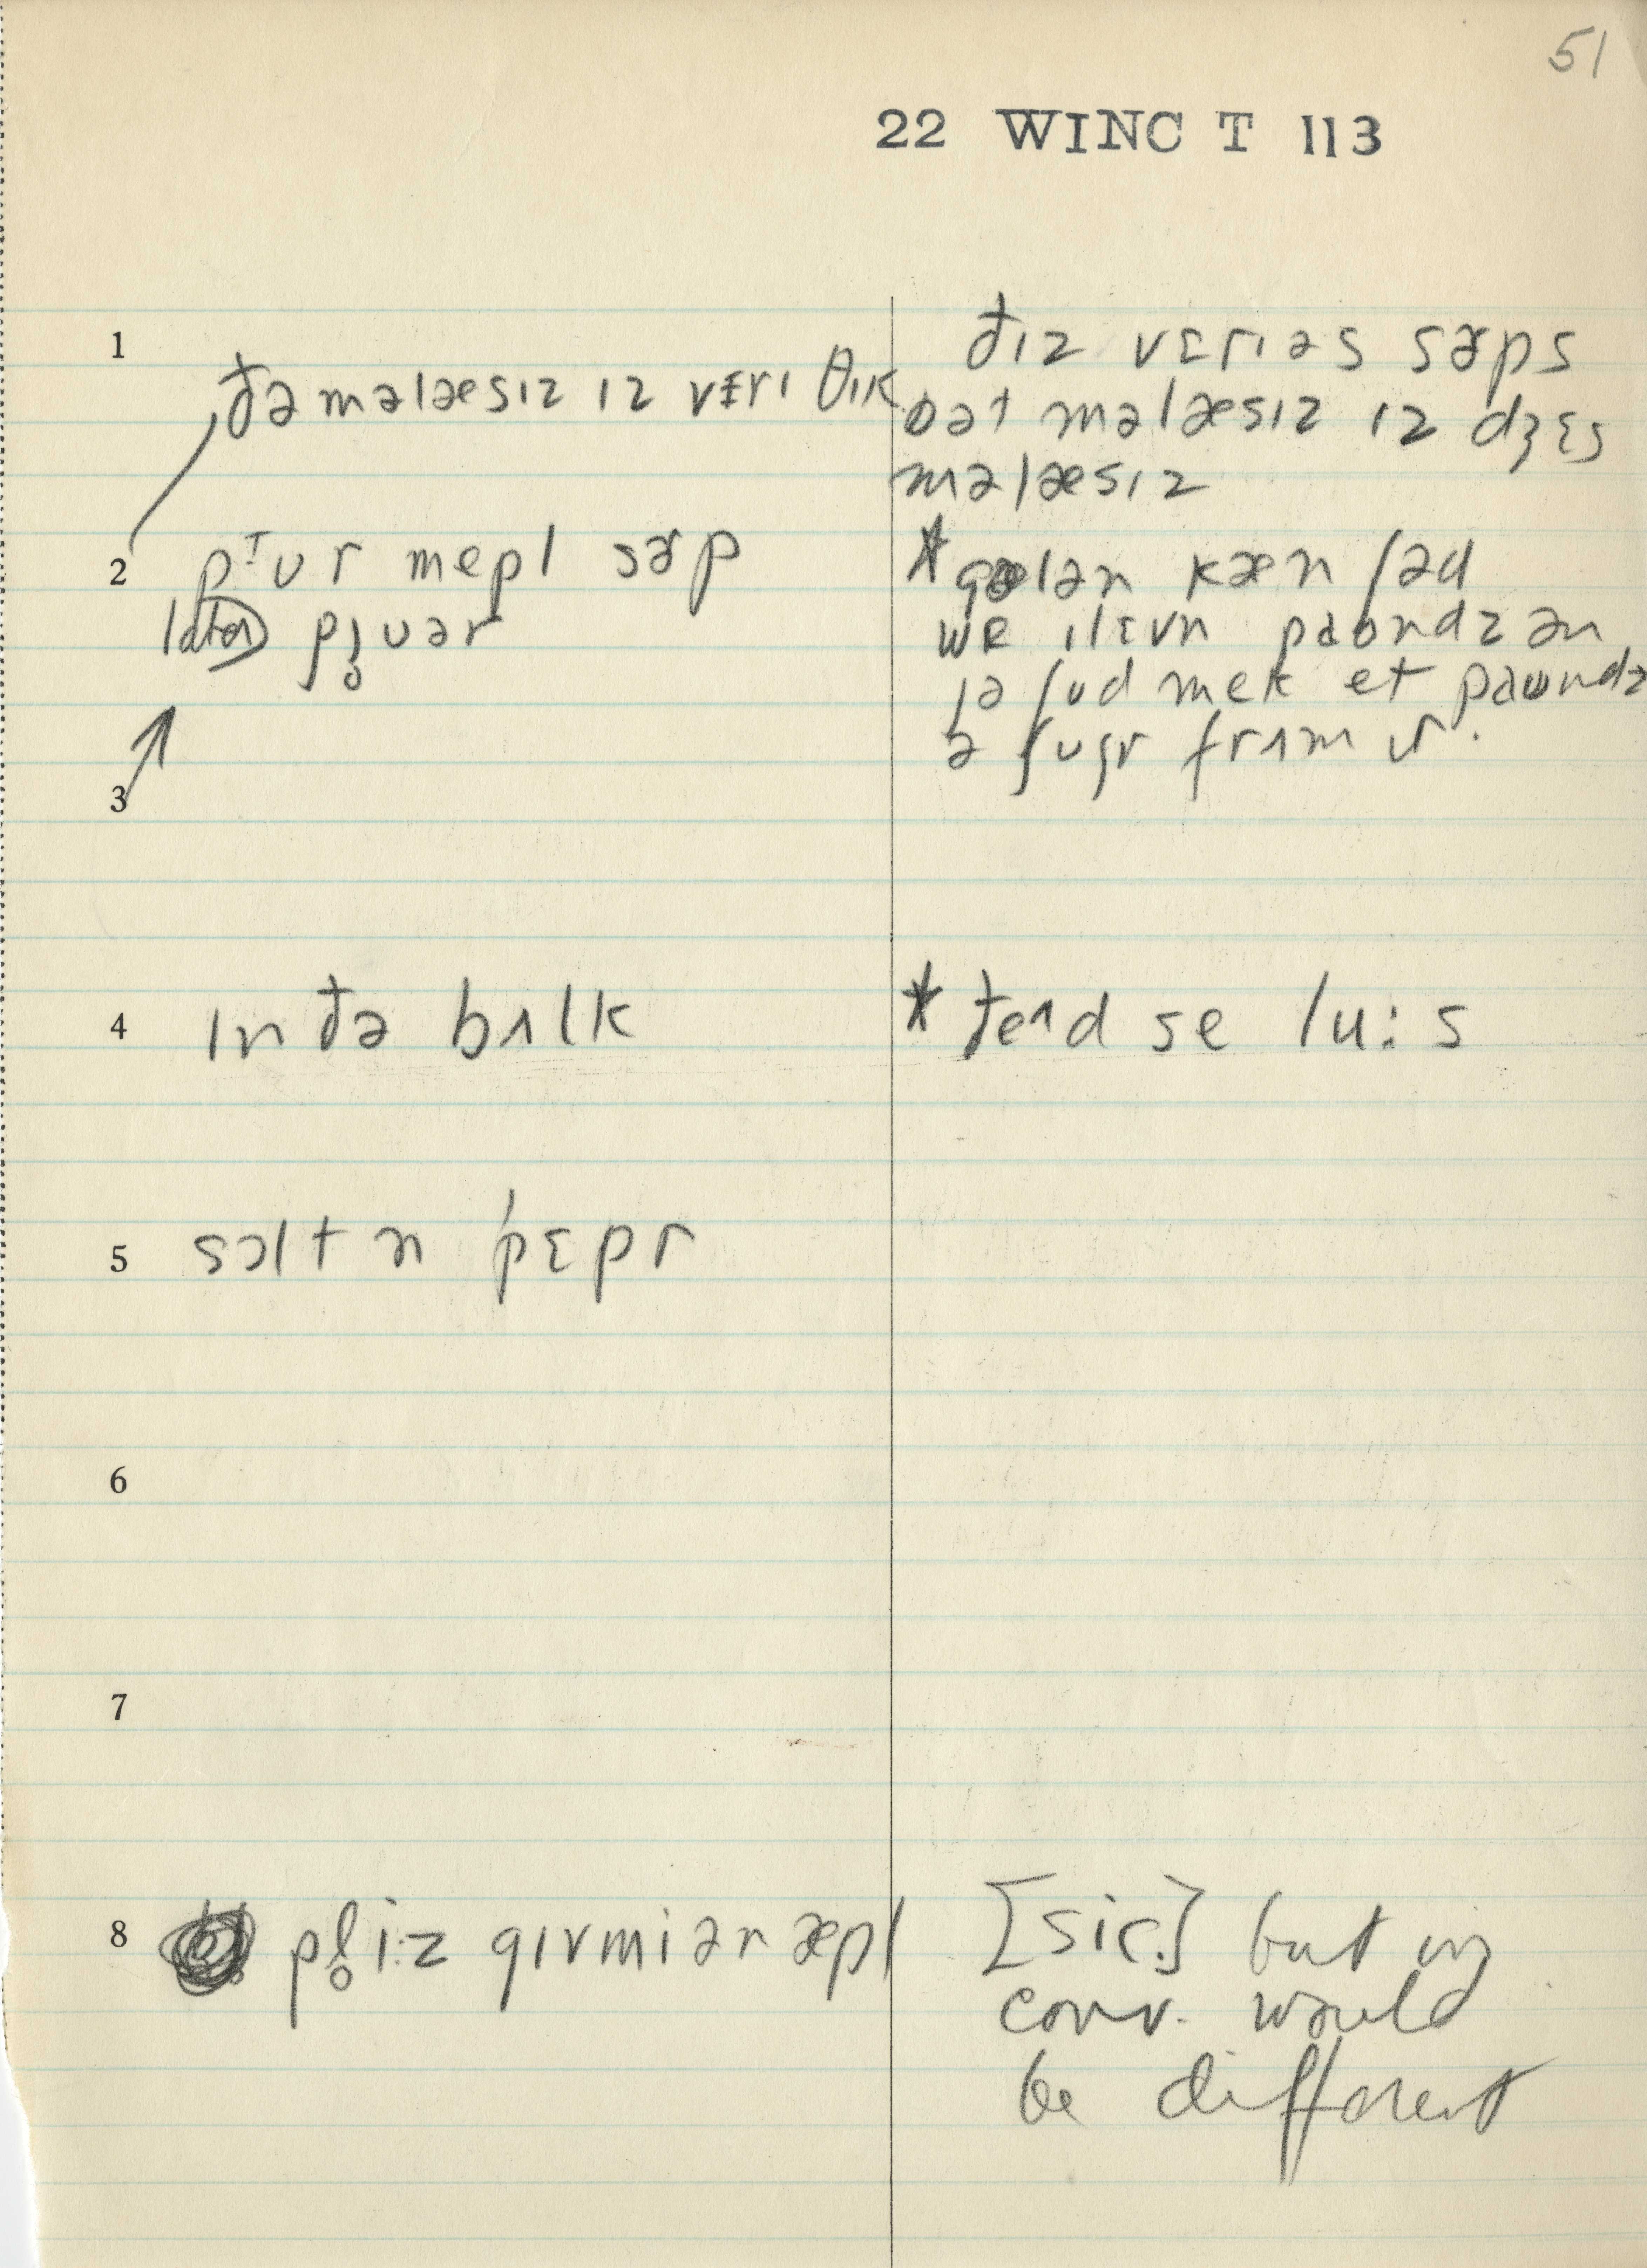 51
22 WINC T 113
1
ðə məlæsɪz ɪz vɛrɪ θɪk
ðɪz vɛrɪəs sɚps
bət məlæsɪz ɪz dʒɛs
məlæsɪz
2 pɪur mepl sɚp
later pj̥uər
* gælən kæn ʃəd
we ɪlɛvn paundz ən
jə ʃud mek et paundz
ə ʃugr frʌm ɪt.
3
4 ɪn ðə bʌlk
* ðeʌd se lu:s
5 sɔlt n ˈpɛpr
6
7
8 pl̥i:z gɪvmiən æpl
[sic.] but in
conv. would
be different